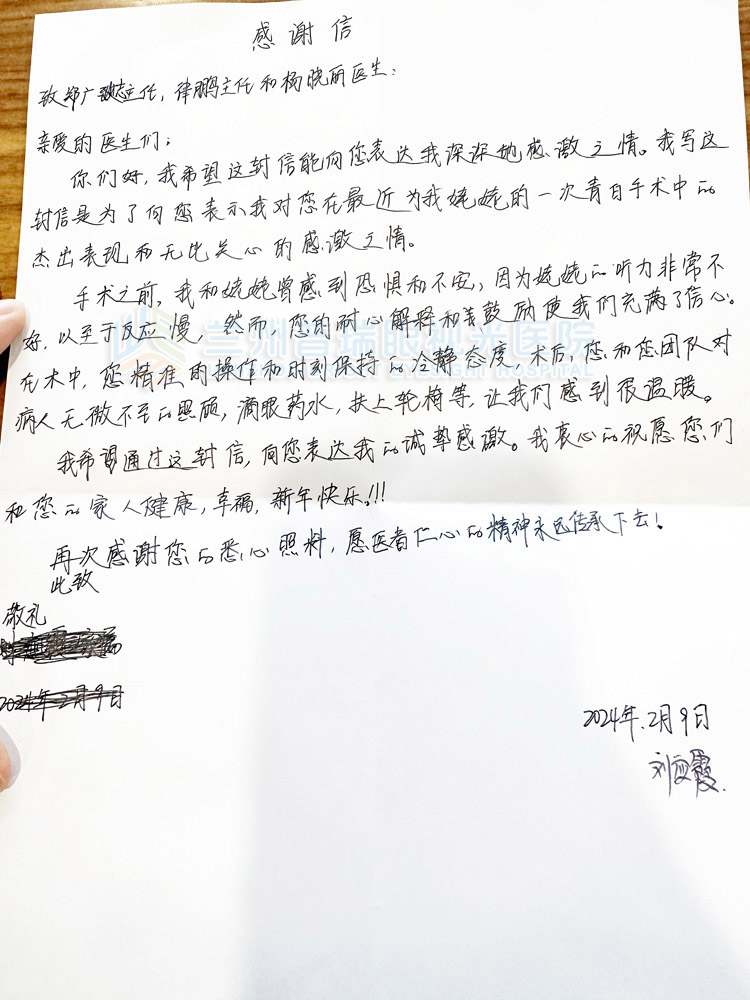 感谢信
致郑广瑛主任，律鹏主任和杨晓丽医生：
亲爱的医生们：
你们好，我希望这封信能向您表达我深深地感激之情。我写这
封信是为了向您表示我对您在最近为我姥姥的一次青白手术中的
杰出表现和无比关心的感激之情。
手术之前，我和姥姥曾感到恐惧和不安，因为姥姥的听力非常不
好，以至于反应慢，然而，您的耐心解释和鼓励使我们充满了信心。
在术中，您精准的操作和时刻保持的冷静态度。术后，您和您团队对
病人无微不至的照顾，滴眼药水，扶上轮椅等，让我们感到很温暖。
我希望通过这封信，向您表达我的诚挚感激。我衷心的祝愿您们
和您的家人健康，幸福，新年快乐！！！
再次感谢您的悉心照料，愿医者仁心的精神永远传承下去！
此致
敬礼
2024年2月9日
2024年.2月9日
刘应霞.
兰州普瑞眼视光医院